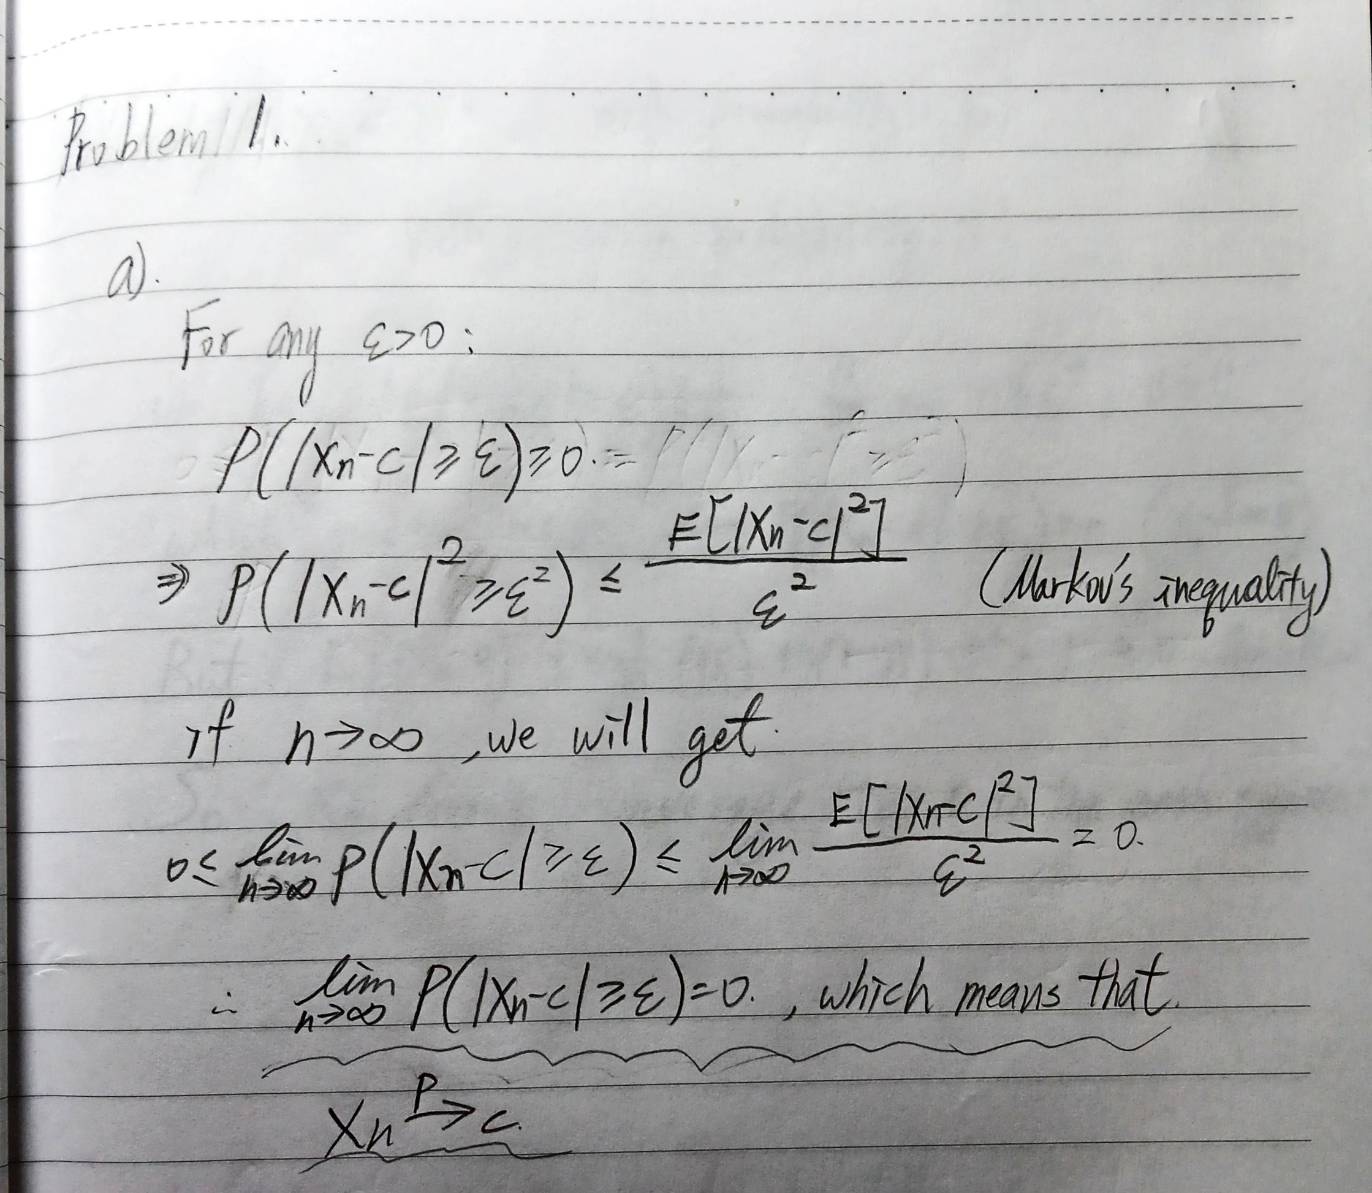 Problem 1.
a).
For any ε>0:
P(|Xn-c|≥ε)≥0.
⇒ P(|Xn-c|²≥ε²) ≤ E[|Xn-c|²]/ε² (Markov's inequality)
if n→∞, we will get.
0≤ lim n→∞ P(|Xn-c|≥ε) ≤ lim n→∞ E[|Xn-c|²]/ε² = 0.
∴ lim n→∞ P(|Xn-c|≥ε)=0., which means that.
Xn P→ c.